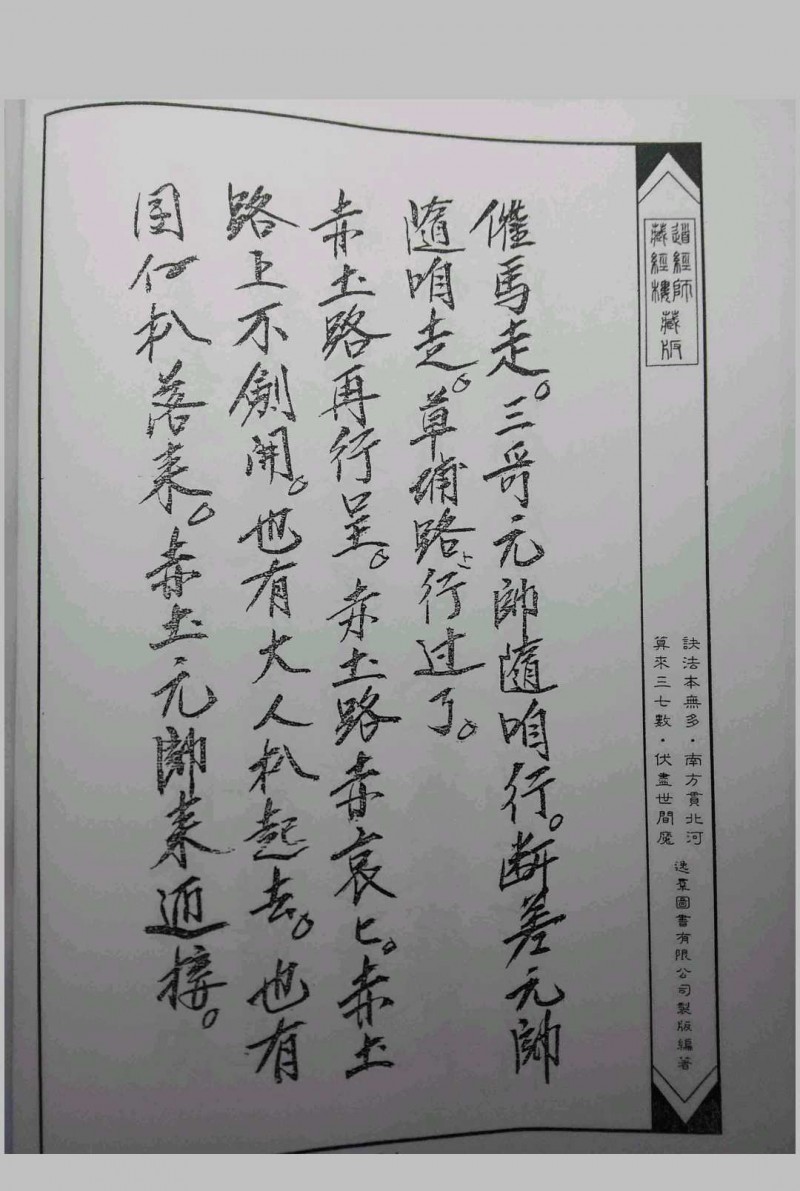 道經師
藏經樓藏版
訣法本無多・南方貫北河
算來三七數・伏盡世間魔
逸羣圖書有限公司製版編著
催馬走。三哥元帥隨咱行。断差元帥
隨咱走。草埔路上行过了。
赤土路再行呈。赤土路赤哀匕。赤土
路上不劍開。也有大人扒起去。也有
囝仔扒落来。赤土元帥来迎接。